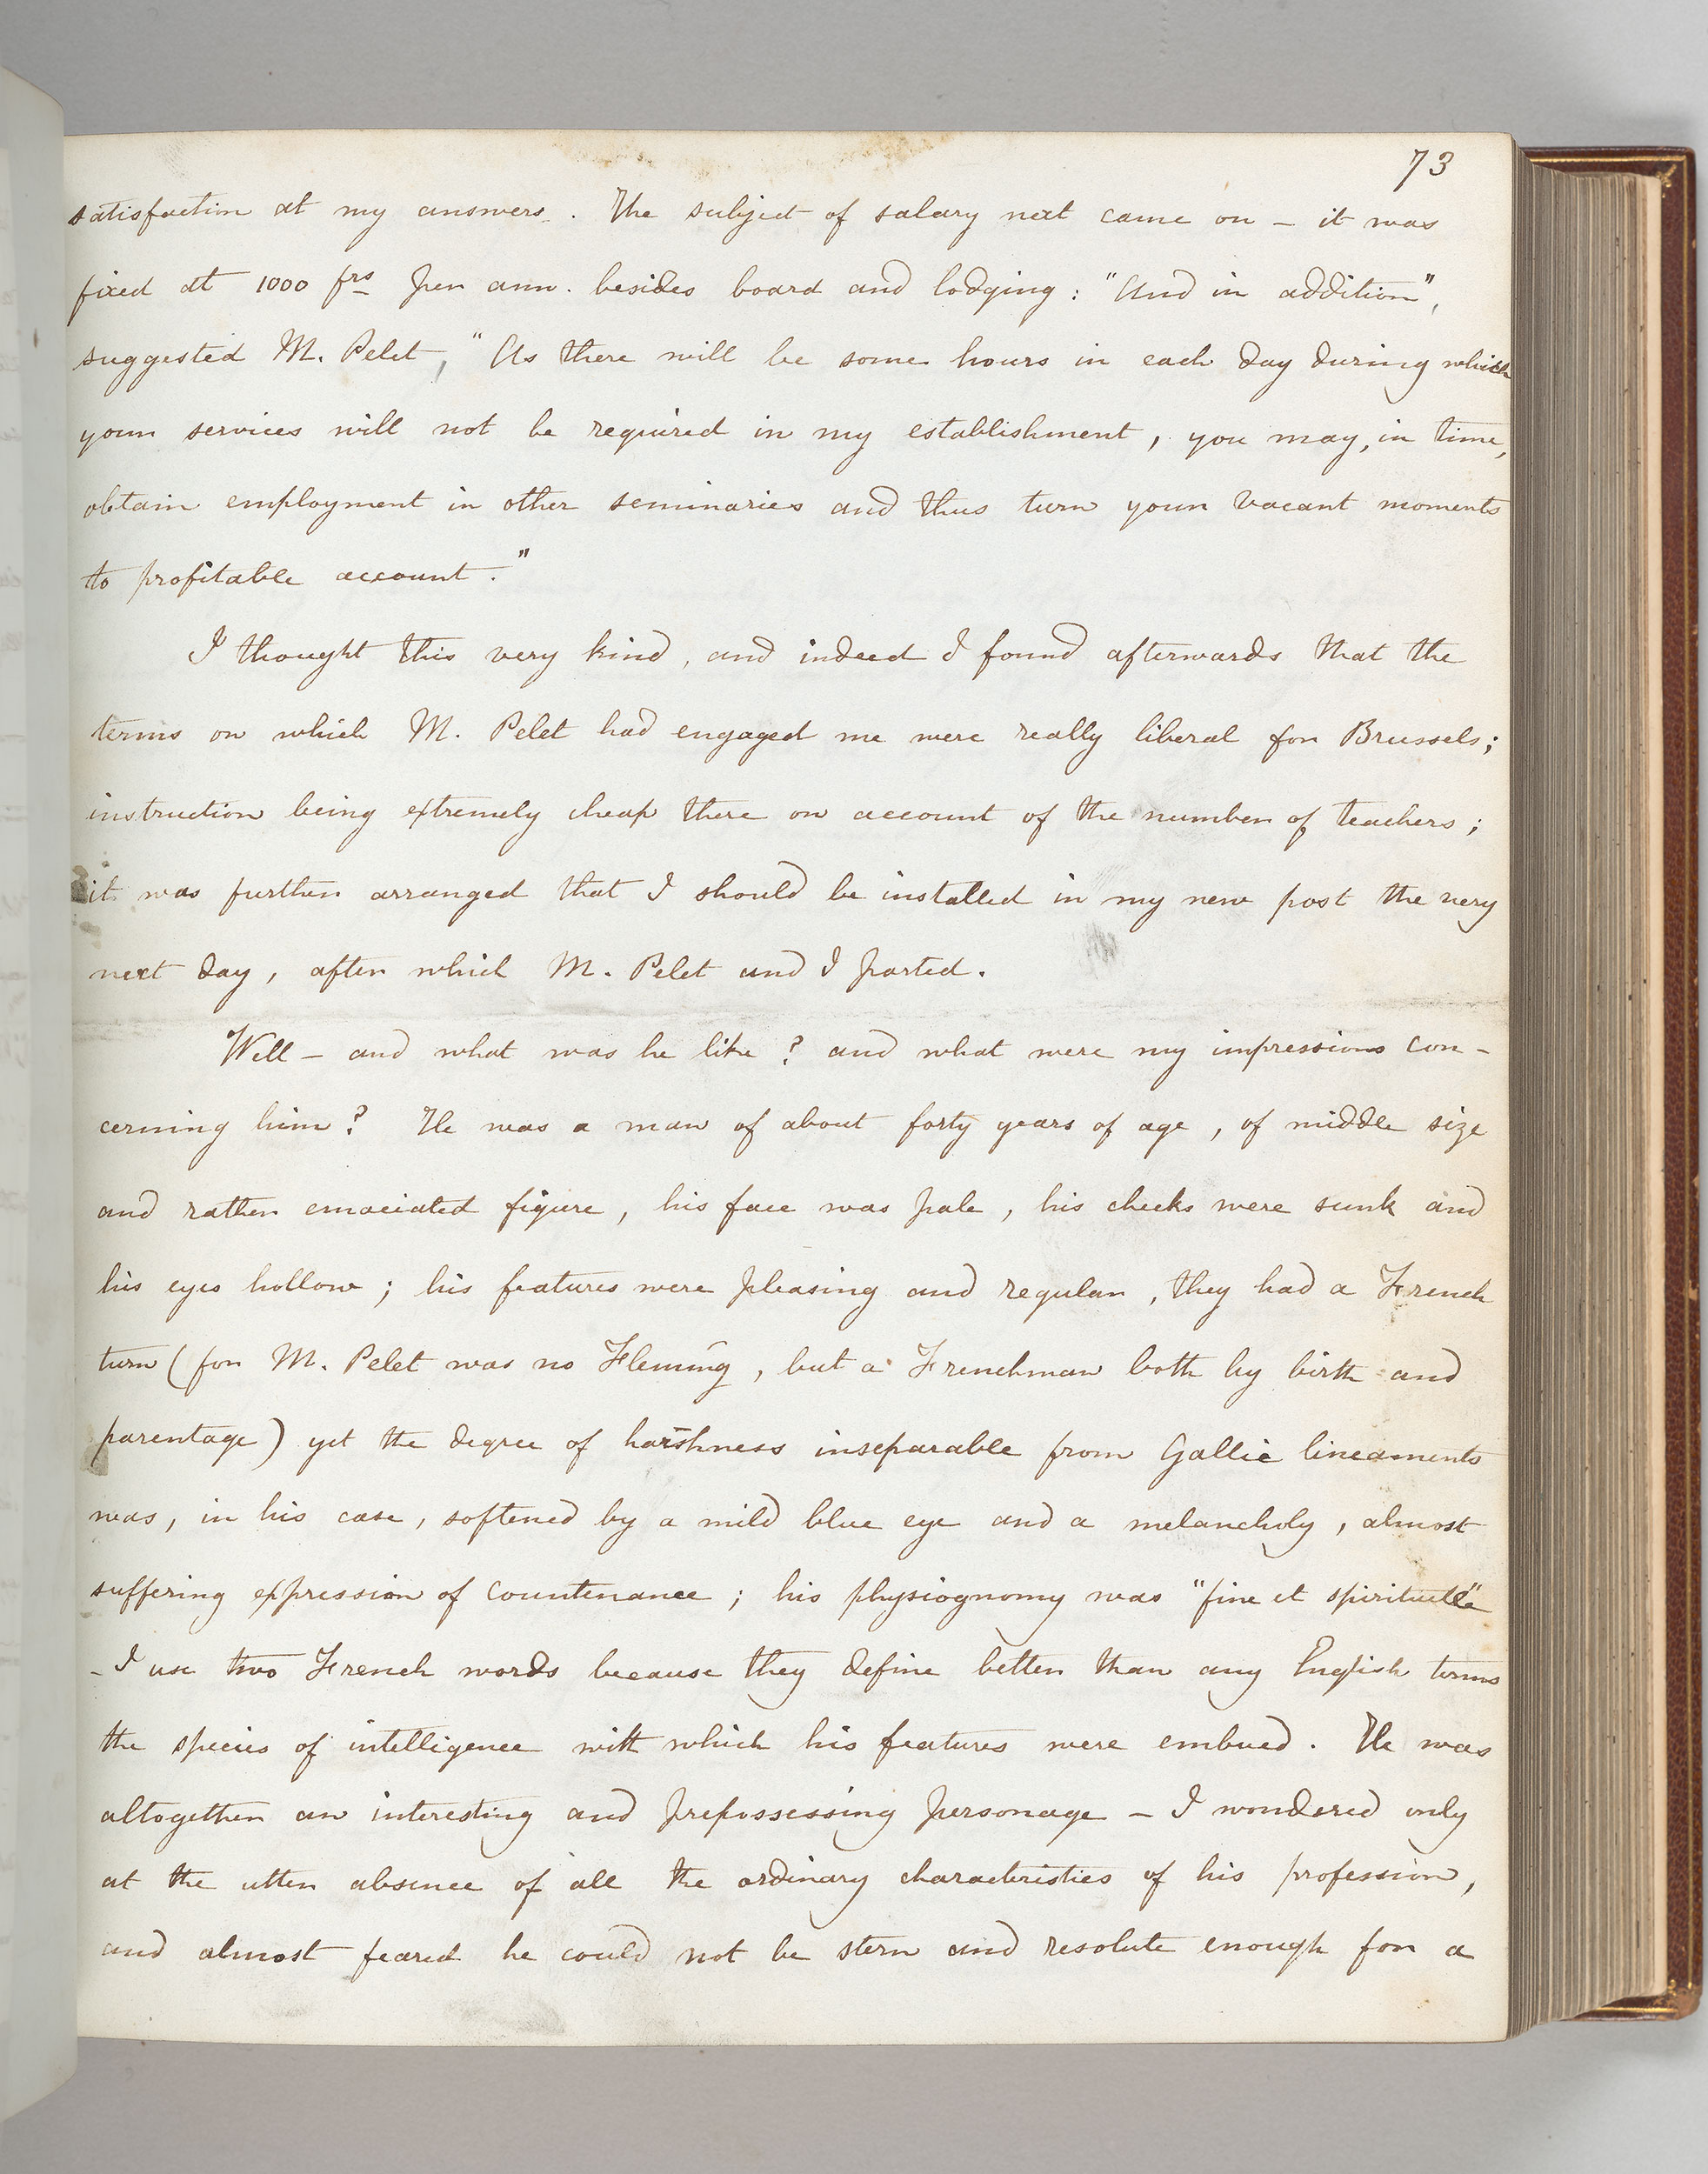 73
satisfaction at my answers. The subject of salary next came on – it was
fixed at 1000 frs per ann. besides board and lodging : "And in addition",
suggested M. Pelet, "As there will be some hours in each day during which
your services will not be required in my establishment, you may, in time,
obtain employment in other seminaries and thus turn your vacant moments
to profitable account."
I thought this very kind, and indeed I found afterwards that the
terms on which M. Pelet had engaged me were really liberal for Brussels;
instruction being extremely cheap there on account of the number of teachers;
it was further arranged that I should be installed in my new post the very
next day, after which M. Pelet and I parted.
Well – and what was he like? and what were my impressions con-
cerning him? He was a man of about forty years of age, of middle size
and rather emaciated figure, his face was pale, his cheeks were sunk and
his eyes hollow; his features were pleasing and regular, they had a French
turn (for M. Pelet was no Fleming, but a Frenchman both by birth and
parentage) yet the degree of harshness inseparable from Gallic lineaments
was, in his case, softened by a mild blue eye and a melancholy, almost
suffering expression of countenance; his physiognomy was "fine et spirituelle"
– I use two French words because they define better than any English terms
the species of intelligence with which his features were embued. He was
altogether an interesting and prepossessing personage – I wondered only
at the utter absence of all the ordinary characteristics of his profession,
and almost feared he could not be stern and resolute enough for a